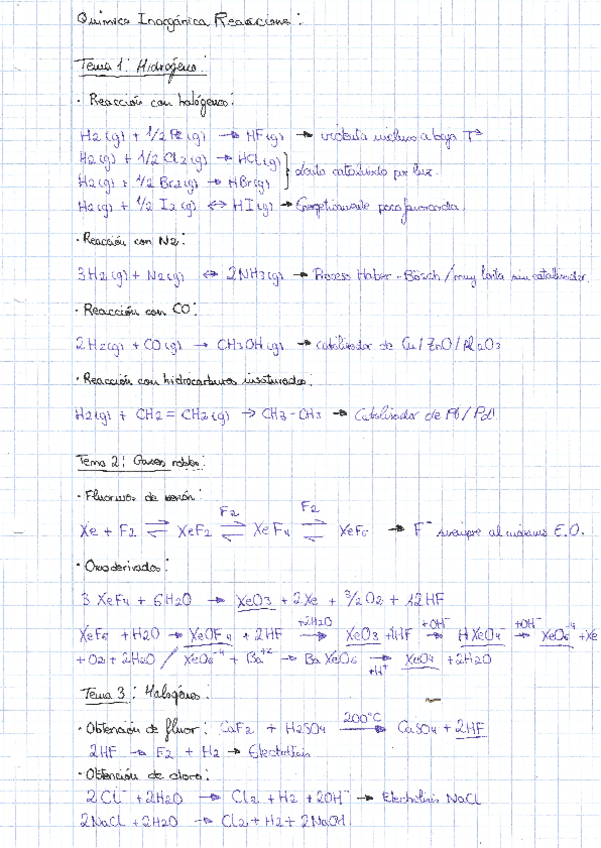 Química Inorgánica Reacciones:
Tema 1: Hidrógeno:
· Reacción con halógenos:
H2(g) + 1/2 F2(g) → HF(g) → violenta incluso a baja Tª
H2(g) + 1/2 Cl2(g) → HCl(g)
H2(g) + 1/2 Br2(g) → HBr(g) } lenta catalizada por luz.
H2(g) + 1/2 I2(g) ⇔ HI(g) → poco favorecida.
· Reacción con N2:
3H2(g) + N2(g) ⇔ 2NH3(g) → Proceso Haber-Bosch / muy lenta sin catalizador.
· Reacción con CO:
2H2(g) + CO(g) → CH3OH(g) → catalizador de Cu/ZnO/Al2O3
· Reacción con hidrocarburos insaturados:
H2(g) + CH2=CH2(g) → CH3-CH3 → Catalizador de Pt/Pd.
Tema 2: Gases nobles:
· Fluoruros de xenón:
Xe + F2 ⇌ XeF2 ⇌ F2 XeF4 ⇌ F2 XeF6 → F⁻ siempre al máximo E.O.
· Oxoderivados:
3 XeF4 + 6H2O → XeO3 + 2Xe + 3/2 O2 + 12HF
XeF6 + H2O → XeOF4 + 2HF +2H2O → XeO3 + 4HF +OH⁻ → HXeO4⁻ +OH⁻ → XeO6⁻⁴ + Xe
+ O2 + 2H2O / XeO6⁻⁴ + Ba⁺² → BaXeO6 → +H⁺ XeO4 + 2H2O
Tema 3: Halógenos.
· Obtención de fluor: CaF2 + H2SO4 200°C → CaSO4 + 2HF
2HF → F2 + H2 → Electrólisis
· Obtención de cloro:
2Cl⁻ + 2H2O → Cl2 + H2 + 2OH⁻ → Electrólisis NaCl
2NaCl + 2H2O → Cl2 + H2 + 2NaOH.